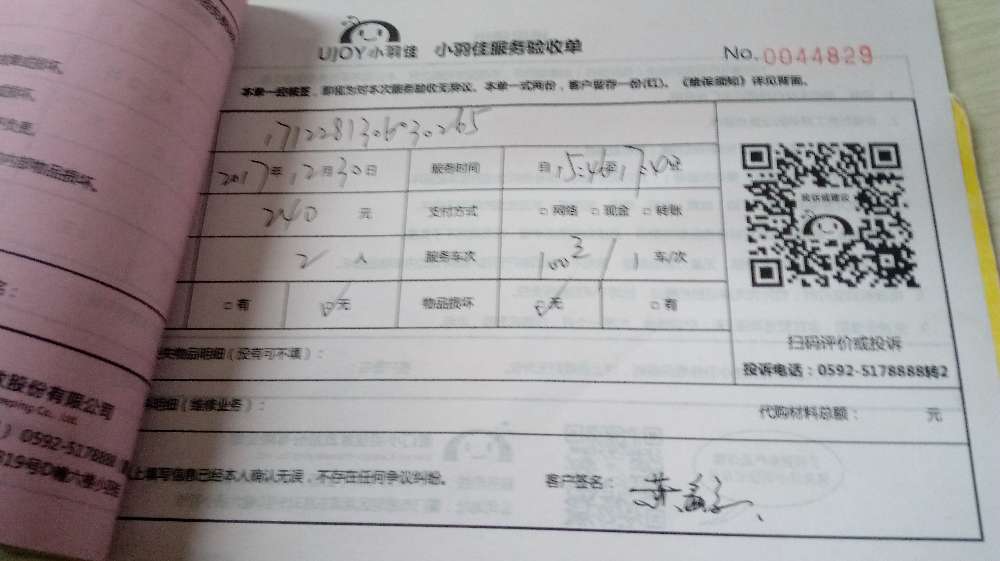 UJOY小羽佳 小羽佳服务验收单 No.0044829
本单一经核签，即视为对本次服务验收无异议。本单一式两份，客户留存一份(红)。《维保须知》详见背面。
171228130630265
2017年12月30日 服务时间 自15:46至17:40
240元 支付方式 □网络 □现金 □转账
2人 服务车次 1车/次
□有 □无 物品损坏 □无 □有
投诉或建议
扫码评价或投诉
投诉电话：0592-5178888转2
物品明细（没有可不填）：
明细（维修业务）：
代购材料总额： 元
上填写信息已经本人确认无误，不存在任何争议纠纷。 客户签名：
损坏。
物品损坏。
名：
股份有限公司
eping Co., Ltd.
0592-5178888
819号D幢六楼小羽佳